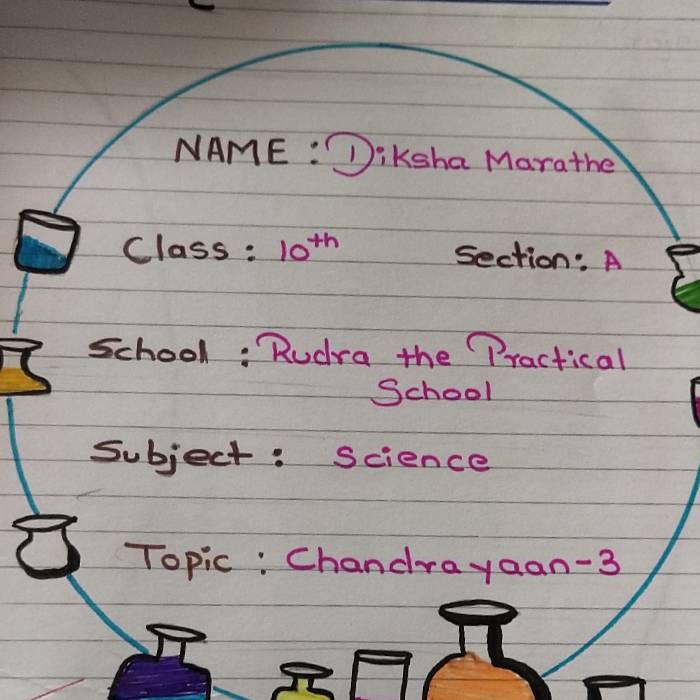 NAME : Diksha Marathe
Class : 10th Section: A
School : Rudra the Practical
School
Subject : Science
Topic : Chandrayaan-3